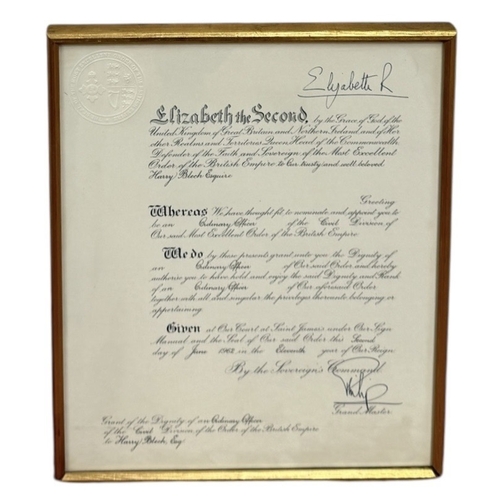 Elizabeth R
Elizabeth the Second, by the Grace of God of the
United Kingdom of Great Britain and Northern Ireland and of Her
other Realms and Territories Queen, Head of the Commonwealth,
Defender of the Faith and Sovereign of the Most Excellent
Order of the British Empire to Our trusty and well beloved
Harry Bloch Esquire
Greeting
Whereas We have thought fit to nominate and appoint you to
be an Ordinary Officer of the Civil Division of
Our said Most Excellent Order of the British Empire
We do by these presents grant unto you the Dignity of
an Ordinary Officer of Our said Order and hereby
authorise you to have hold and enjoy the said Dignity and Rank
of an Ordinary Officer of Our aforesaid Order
together with all and singular the privileges thereunto belonging or
appertaining
Given at Our Court at Saint James's under Our Sign
Manual and the Seal of Our said Order this Second
day of June 1962 in the Eleventh year of Our Reign
By the Sovereign's Command
Philip
Grand Master
Grant of the Dignity of an Ordinary Officer
of the Civil Division of the Order of the British Empire
to Harry Bloch, Esq.